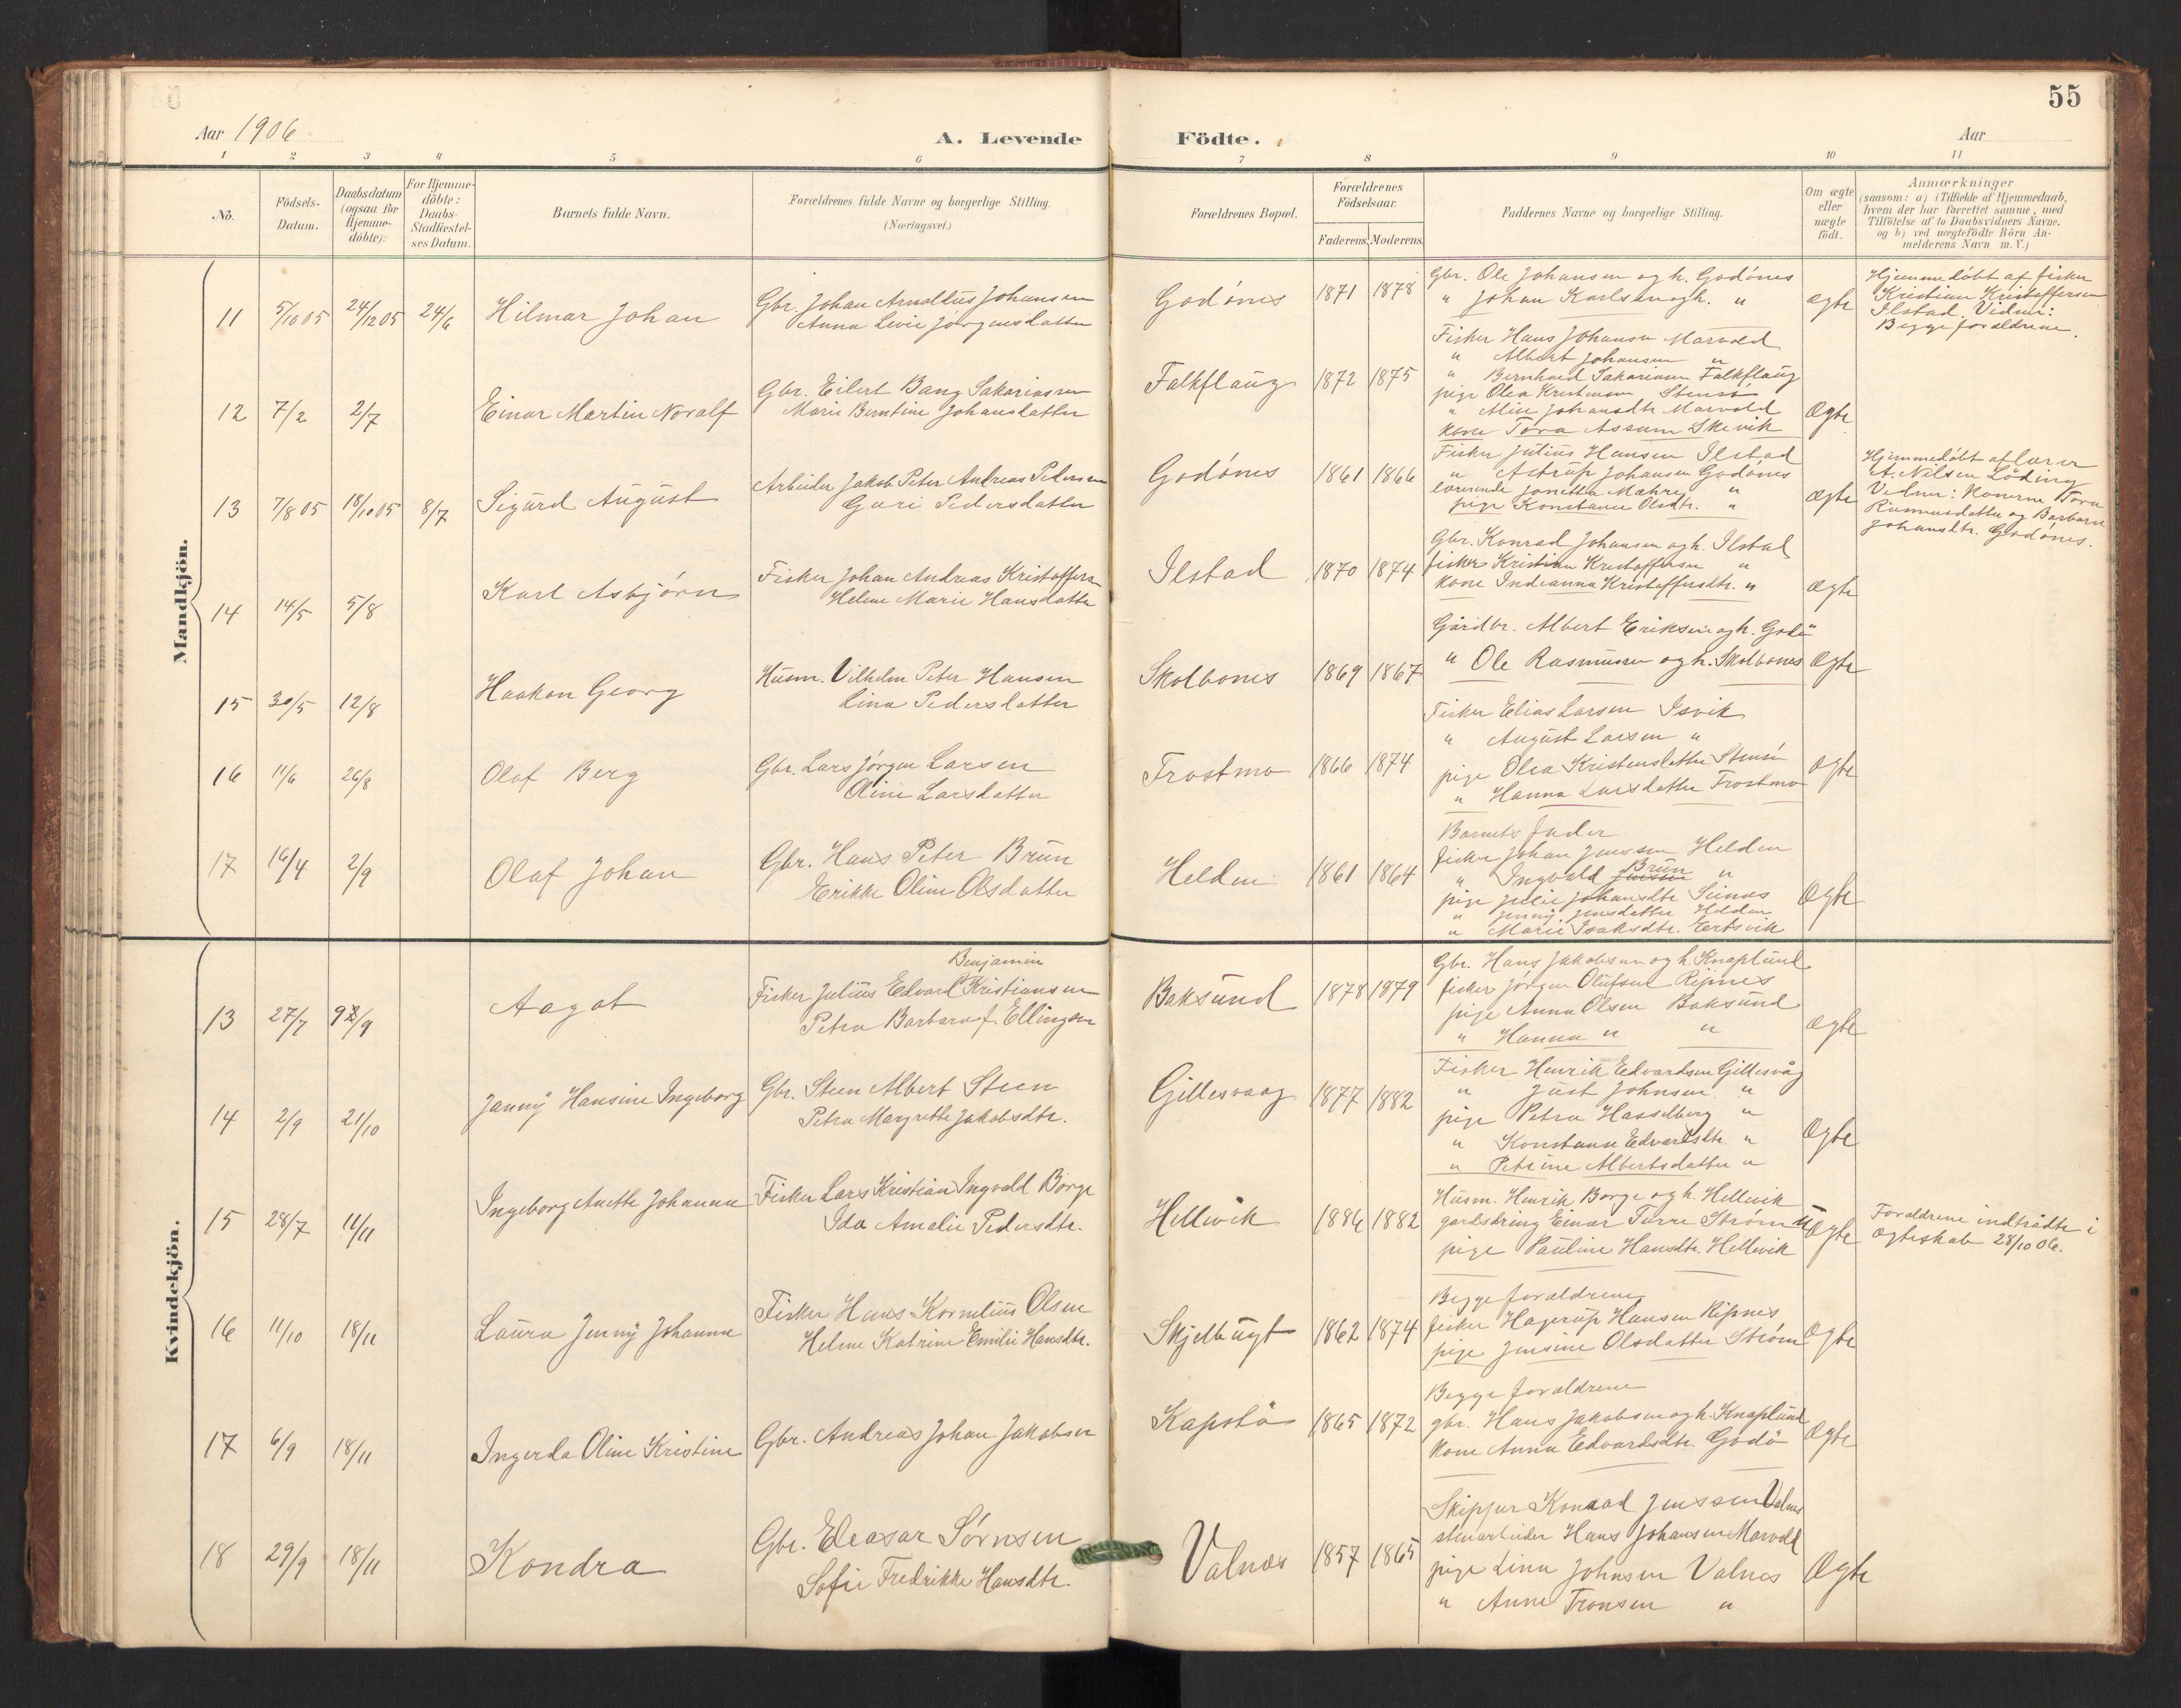 55
Aar 1906
A. Levende
Födte.
Aar
1 2 3 4 5 6 7 8 9 10 11
No.
Födsels-
Datum.
Daabsdatum
(ogsaa för
Hjemme-
döbte).
For Hjemme-
döbte:
Daabs-
Stadfæstel-
ses Datum.
Barnets fulde Navn.
Forældrenes fulde Navne og borgerlige Stilling.
(Næringsvei.)
Forældrenes Bopæl.
Forældrenes
Födselsaar.
Faderens. Moderens.
Faddernes Navne og borgerlige Stilling.
Om ægte
eller
uægte
födt.
Anmærkninger
(saasom: a) i Tilfælde af Hjemmedaab,
hvem der har forrettet samme, med
Tilföielse af to Daabsvidners Navne.
og b) ved uægtefödte Börn An-
melderens Navn m. V.)
Mandkjön.
11 5/10 05 24/12 05 24/6 Hilmar Johan
Gbr. Johan Arndtus Johansen
Anna Livie Jørgensdatter
Godønes 1871 1878
Gbr. Ole Johansen og h. Godønes
" Johan Karlsen og h. "
ægte
Hjemmedøbt af fisker
Kristian Kristoffersen
Ilstad. Vidner:
Begge forældrene.
12 7/2 2/7 Einar Martin Noralf
Gbr. Eilert Bang Sakariassen
Marie Berntine Johansdatter
Falkflaug 1872 1875
Fisker Hans Johansen Marvold
" Albert Johansen "
" Bernhard Sakariasen Falkflaug
pige Olea Kristensen Stensø
" Aline Johansdtr Marvold
kone Tora Assum Skivik
Ægte
13 7/8 05 18/10 05 8/7 Sigurd August
Arbeider Jakob Peter Andreas Pedersen
Guri Pedersdatter
Godønes 1861 1866
Fisker Julius Hansen Ilstad
" Astrup Johansen Godønes
lærerinde Jonetta Mæhre "
pige Konstanse Olsdtr. "
ægte
Hjemmedøbt af lærer
A. Nilsen Løding
Vidner: Konerne Tora
Rasmusdatter og Barbara
Johansdtr. Godønes.
14 14/5 5/8 Karl Asbjørn
Fisker Johan Andreas Kristoffersen
Helene Marie Hansdatter
Ilstad 1870 1874
Gbr. Konrad Johansen og h. Ilstad
fisker Kristian Kristoffersen "
kone Indianna Kristoffersdtr. "
ægte
15 30/5 12/8 Haakon Georg
Husm. Vilhelm Peter Hansen
Lina Pedersdatter
Skolbones 1869 1867
Gårdbr. Albert Eriksen og h. Godø
" Ole Rasmussen og h. Skolbones
Ægte
16 11/6 26/8 Olaf Berg
Gbr. Lars Jørgen Larsen
Oline Larsdatter
Frostmo 1866 1874
Fisker Elias Larsen Isvik
" August Larsen "
pige Olea Kristensdatter Stensø
" Hanna Larsdatter Frostmo
ægte
17 16/4 2/9 Olaf Johan
Gbr. Hans Peter Brun
Erikke Oline Olsdatter
Helden 1861 1864
Barnets fader
fisker Johan Jenssen Helden
" Ingvald Jenssen Brun "
pige Julie Johansdtr Seines
" Jenny Jensdatter Helden
" Marie Isaksdtr. Eertsvik
Ægte
Kvindekjön.
13 27/7 9/9 Aagot
Benjamin
Fisker Julius Edvard Kristiansen
Petra Barbara f. Ellingsen
Baksund 1878 1879
Gbr. Hans Jakobsen og h. Knaplund
fisker Jørgen Olufsen Ripnes
pige Anna Olsen Baksund
" Hanna " "
ægte
14 2/9 21/10 Janny Hansine Ingeborg
Gbr. Steen Albert Steen
Petra Margrethe Jakobsdtr.
Gillesvaag 1877 1882
Fisker Henrik Edvardsen Gillesvåg
" Just Johnsen "
pige Petra Hasselberg "
" Konstanse Edvardsdtr. "
" Petrine Albertsdatter "
Ægte
15 28/7 11/11 Ingeborg Anette Johanna
Fisker Lars Kristian Ingvald Borge
Ida Amalie Pedersdtr.
Hellevik 1886 1882
Husm. Henrik Borge og h. Hellevik
gardsdreng Einar Turre Strøm
pige Pauline Hansdtr. Hellevik
Uægte
Forældrene indtrådte i
ægteskab 28/10 06.
16 11/10 18/11 Laura Jenny Johanna
Fisker Hans Kornelius Olsen
Helene Katrine Emilie Hansdtr.
Skjelbugt 1862 1874
Begge forældrene
fisker Hagerup Hansen Ripnes
pige Jensine Olsdatter Strøm
Ægte
17 6/9 18/11 Ingerda Oline Kristine
Gbr. Andreas Johan Jakobsen
Kapstø 1865 1872
Begge forældrene
gbr. Hans Jakobsen og h. Knaplund
kone Anna Edvardsdtr. Godø
Ægte
18 29/9 18/11 Kondra
Gbr. Eleasar Sørnsen
Sofie Fredrikke Hansdtr.
Valnæs 1857 1865
Skipper Konrad Jenssen Valnes
stenarbeider Hans Johansen Marvold
pige Lina Johnsen Valnæs
" Anne Tronsen "
Ægte